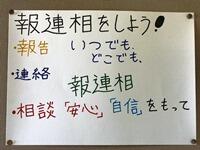 報連相をしよう!
・報告 いつでも、
どこでも、
・連絡
報連相
・相談「安心」「自信」をもって